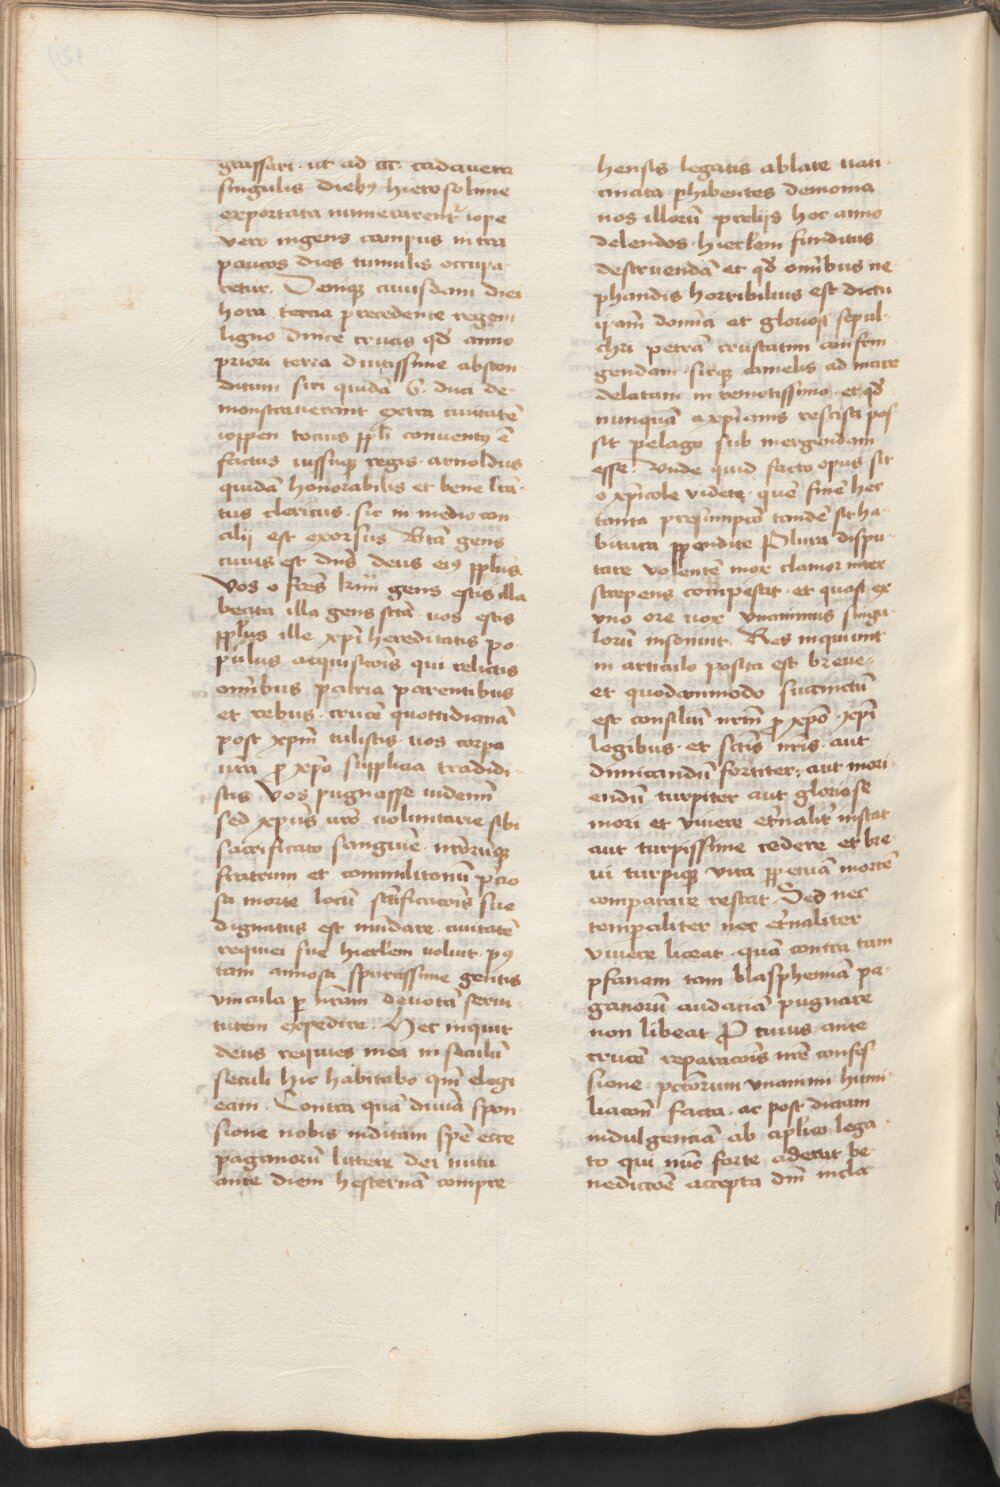 grassari · ut ad CCC cadauera
singulis diebꝫ hierosolime
exportata numerarent᷑ iope
vero ingens campus intra
paucos dies tumulis occupa
retur. Deniqꝫ cuiusdam diei
hora tercia precedente regem
ligno dn̄ice crucis qd̄ anno
priori terra diutissime abscon
ditum siri quidā G. duci de
monstrauerant extra ciuitatē
ioppen tocius ppl̄i conuentꝯ ē
factus iussuqꝫ regis · arnoldus
quidā honorabilis et bene lr̄a
tus clericus · sic in medio con
cilij est exorsus Btā gens
cuius est dn̄s deus eiꝯ ppl̄us.
Vos o frēs kr̄mi gens estis illa
beata illa gens sctā uos estis
ppl̄us ille xpī hereditatis po
pulus acquisicōis qui relictis
omībus patria parentibus
et rebus · crucē quottidianā
post xpm̄ tulistis uos corpa
ur̄a ꝓ xpō supplicia tradidi
stis. Vos pugnasse uidemī
sed xpus uro uoluntarie sibi
sacrificato sanguīe nrōrūqꝫ
fratrum et commilitonū p̄cio
sa morte locū scīficacōis sue
dignatus est mūdare ciuitatē
requiei sue hierlem uoluit pꝯ
tam annosa spurcissime gentis
vincula ꝑ ur̄am deuotā serui
tutem expedire. Hec inquit
deus requies mea in seculū
seculi hic habitabo qm̄ elegi
eam. Contra quā diuinā spon
sione nobis inditam spē ecce
paganorū littere dei nutu
ante diem hesternā compre
hensis legatis ablate uati
cinata ꝑhibentes demonia
nos illorū prelijs hoc anno
delendos · hierlem funditus
destruendā et qd̄ omībus ne
phandis horribilius est dictu
ipam̄ domīci et gloriosi sepul
chri petrā crustatim confrin
gendam sicqꝫ camelis ad mare
delatum in remotissimo et qd̄
nunquā a xpīanis rescisci pos
sit pelago sub mergendam
esse Vnde quid facto opus sit
o xpīcole videte · quē finē hec
tanta presumpcō tandē sit ha
bitura ppendite Plura dispu
tare volentē mox clamor inter
strepens compescit · et quasi ex
vno ore uox vnanimis singu
lorū insonuit. Res inquiunt
in articulo posita est breue
et quodammodo succinctū
est consiliū nrm̄ ꝓ xpō · xpī
legibus · et scīs nr̄is · aut
dimicandū fortiter, aut mori
endū turpiter aut gloriose
mori et viuere et̄nalit̄ instat
aut turpissime cedere et bre
ui turpiqꝫ vita ppetuā mortē
comparare restat. Sed nec
temporaliter nec et̄naliter
viuere liceat · quā contra tam
ꝓfanam tam blasphemā pa
ganorū audaciā pugnare
non libeat P cuius ante
crucē reparacōis nrē confes
sione pctōrum vnanimi humi
liacōn̄ facta · ac post dictam
indulgenciā ab aplico lega
to qui nūc forte aderat be
nedictōē accepta dm̄ incla